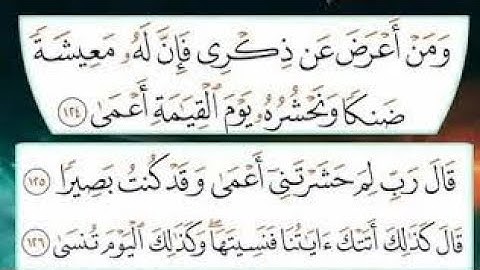 وَمَنْ أَعْرَضَ عَن ذِكْرِى فَإِنَّ لَهُۥ مَعِيشَةً
ضَنكًا وَنَحْشُرُهُۥ يَوْمَ ٱلْقِيَٰمَةِ أَعْمَىٰ ١٢٤
قَالَ رَبِّ لِمَ حَشَرْتَنِىٓ أَعْمَىٰ وَقَدْ كُنتُ بَصِيرًا ١٢٥
قَالَ كَذَٰلِكَ أَتَتْكَ ءَايَٰتُنَا فَنَسِيتَهَا ۖ وَكَذَٰلِكَ ٱلْيَوْمَ تُنسَىٰ ١٢٦